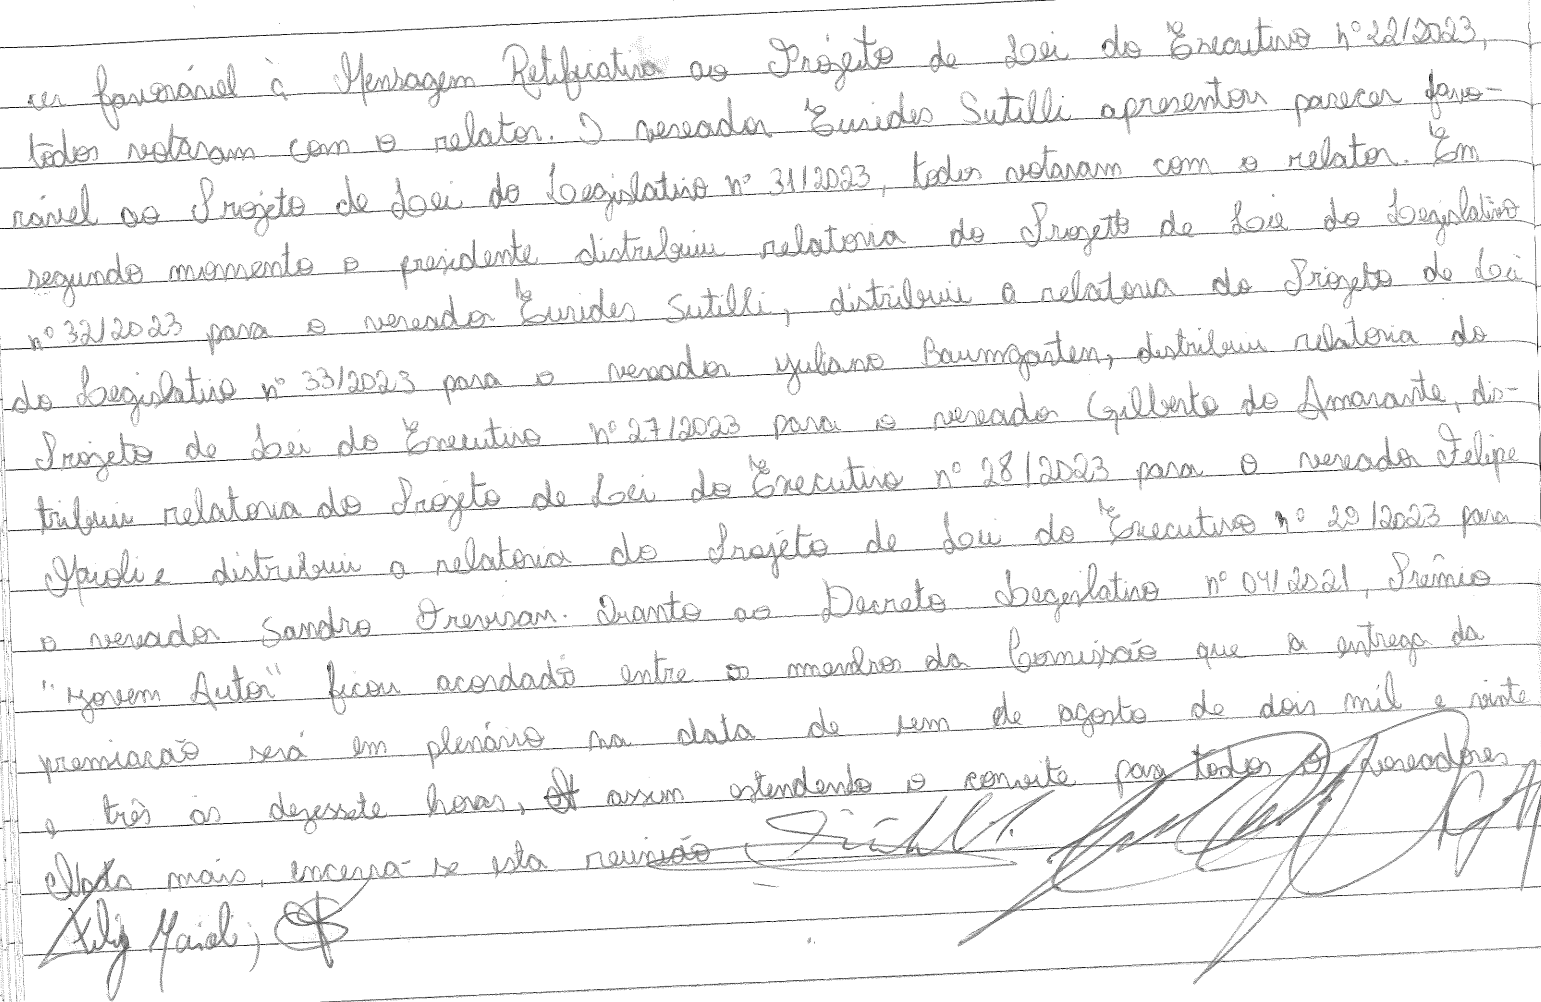 cer favorável à Mensagem Retificativa ao Projeto de Lei do Executivo nº 22/2023,
todos votaram com o relator. O vereador Eurides Sutilli apresentou parecer favo-
rável ao Projeto de Lei do Legislativo nº 31/2023, todos votaram com o relator. Em
segundo momento o presidente distribuiu relatoria do Projeto de Lie do Legislativo
nº 32/2023 para o vereador Eurides Sutilli, distribuiu a relatoria do Projeto de Lei
do Legislativo nº 33/2023 para o vereador Juliano Baumgarten, distribuiu relatoria do
Projeto de Lei do Executivo nº 27/2023 para o vereador Gilberto do Amarante, dis-
tribuiu relatoria do Projeto de Lei do Executivo nº 28/2023 para o vereador Felipe
Maioli e distribuiu a relatoria do Projeto de Lei do Executivo nº 29/2023 para
o vereador Sandro Trevisan. Quanto ao Decreto Legislativo nº 04/2021, Prêmio
"Jovem Autor" ficou acordado entre os membros da Comissão que a entrega da
premiação será em plenário na data de sem de agosto de dois mil e vinte
e três às dezessete horas, assim estendendo o convite para todos os vereadores
Nada mais, encerra-se esta reunião
Felip Maioli;